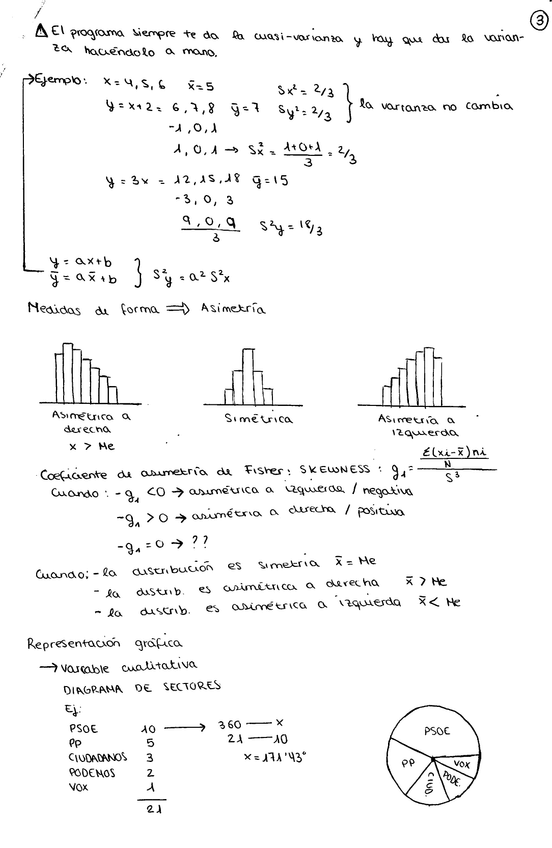 3
⚠ El programa siempre te da la cuasi-varianza y hay que dar la varian-
za haciéndolo a mano.
Ejemplo: x = 4, 5, 6 x̄ = 5 Sx² = 2/3
y = x+2 = 6, 7, 8 ȳ = 7 Sy² = 2/3 } la varianza no cambia
-1, 0, 1
1, 0, 1 → S²x = (1+0+1)/3 = 2/3
y = 3x = 12, 15, 18 ȳ = 15
-3, 0, 3
9, 0, 9 / 3 S²y = 18/3
y = ax+b
ȳ = a x̄ + b } S²y = a² S²x
Medidas de forma ⟹ Asimetría
Asimétrica a derecha
x > Me
Simétrica
Asimetría a izquierda
Coeficiente de asimetría de Fisher: SKEWNESS: g₁ = (Σ(xi-x̄)ni / N) / S³
Cuando: - g₁ < 0 → asimétrica a izquierda / negativa
- g₁ > 0 → asimétria a derecha / positiva
- g₁ = 0 → ??
Cuando; - la distribución es simetria x̄ = Me
- la distrib. es asimétrica a derecha x̄ > Me
- la distrib. es asimétrica a izquierda x̄ < Me
Representación gráfica
→ Variable cualitativa
DIAGRAMA DE SECTORES
Ej:
PSOE 10 → 360 — x
PP 5 21 — 10
CIUDADANOS 3 x = 171'43°
PODEMOS 2
VOX 1
21
PSOE
PP
VOX
PODE.
CIUD.